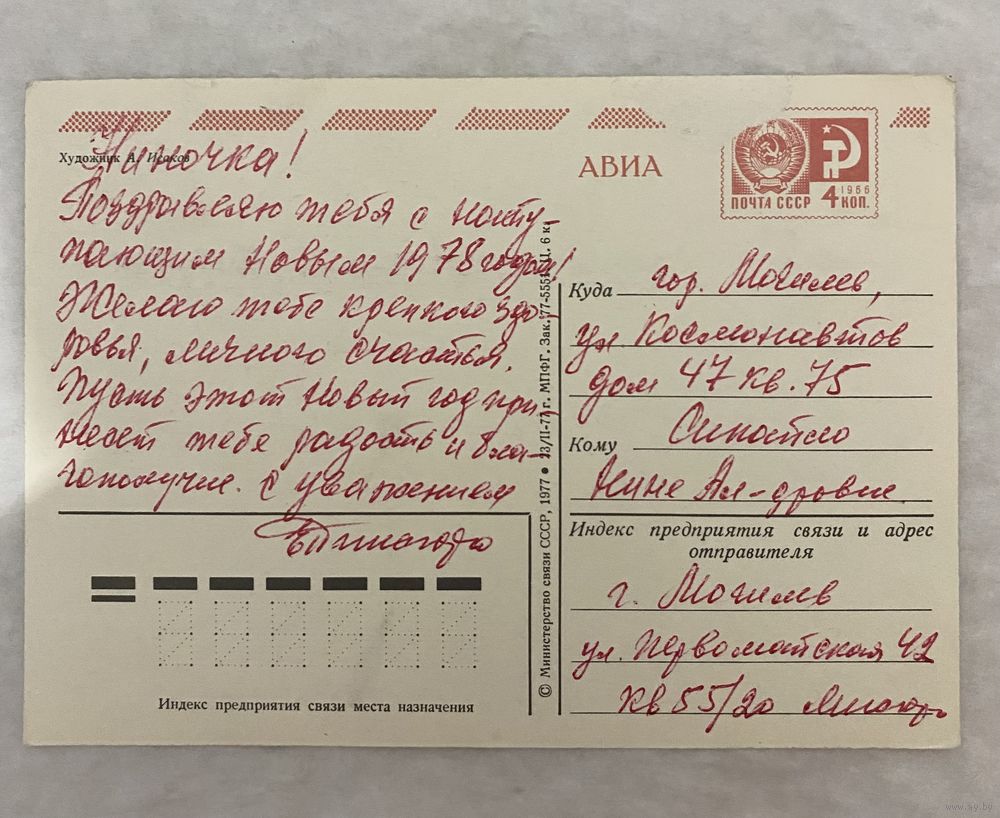 Художник А. Исаков
АВИА
ПОЧТА СССР
1966
4 КОП.
Ниночка!
Поздравляю тебя с насту-
пающим Новым 1978 годом!
Желаю тебе крепкого здо
ровья, личного счастья.
Пусть этот Новый год при
несет тебе радость и бла-
гополучие. С уважением
Куда гор. Могилев,
ул. Космонавтов
дом 47 кв. 75
Кому
Нине Ал-дровне.
Индекс предприятия связи и адрес
отправителя
г. Могилев
ул. Первомайская 42
кв 55/20
Индекс предприятия связи места назначения
© Министерство связи СССР, 1977 ● 23/II-77 г. МПФГ. Зак. 77-555 Ц. 6 к.
www.ay.by